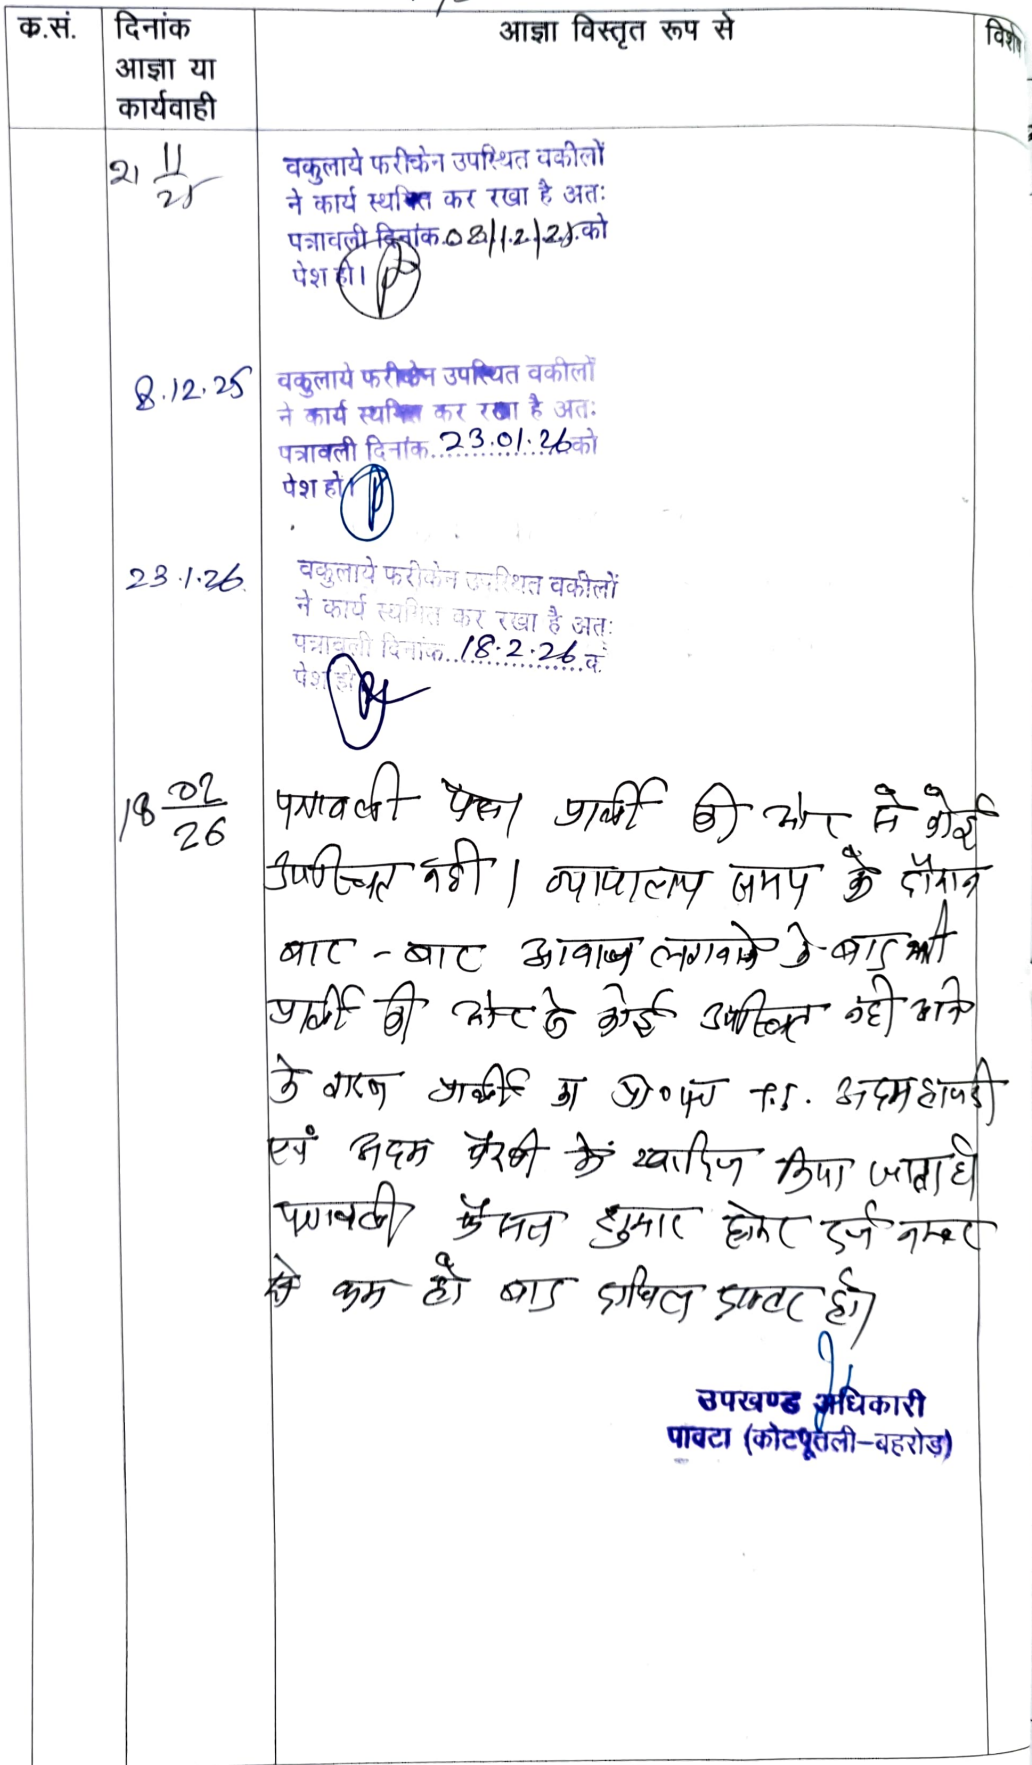 क.सं.
दिनांक
आज्ञा या
कार्यवाही
आज्ञा विस्तृत रूप से
विशे
21 11/25
वकुलाये फरीकेन उपस्थित वकीलों
ने कार्य स्थगित कर रखा है अतः
पत्रावली दिनांक 08/12/25 को
पेश हो।
8.12.25
वकुलाये फरीकेन उपस्थित वकीलों
ने कार्य स्थगित कर रखा है अतः
पत्रावली दिनांक 23.01.26 को
पेश हो।
23.1.26
वकुलाये फरीकेन उपस्थित वकीलों
ने कार्य स्थगित कर रखा है अतः
पत्रावली दिनांक 18.2.26
पेश हो
18 02/26
पत्रावली पेश। प्रार्थी की ओर से कोई
उपस्थित नही। न्यायालय समय के दौरान
बार - बार आवाज लगवाने के बाद भी
प्रार्थी की ओर से कोई उपस्थित नही आने
के कारण प्रार्थी का प्रा०पत्र T.I. अदम हाजरी
एवं अदम पैरवी में खारिज किया जाता है
पत्रावली फैसल शुमार होकर दर्ज नम्बर
से कम हो बाद दाखिल दफ्तर हो।
उपखण्ड अधिकारी
पावटा (कोटपूतली-बहरोड़)